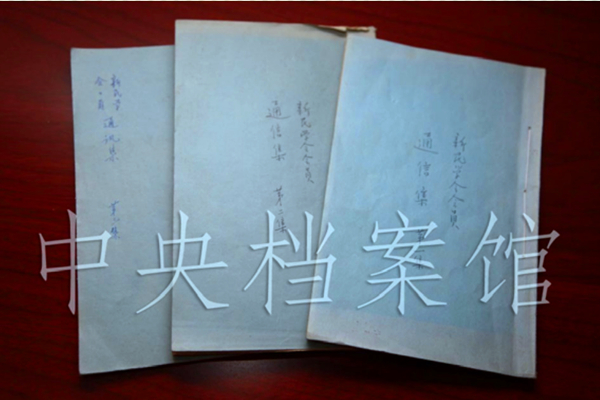 新民学
会々員
通讯集
新民学会会员
通信集 第二集
新民学会会员
通信集
中央档案馆